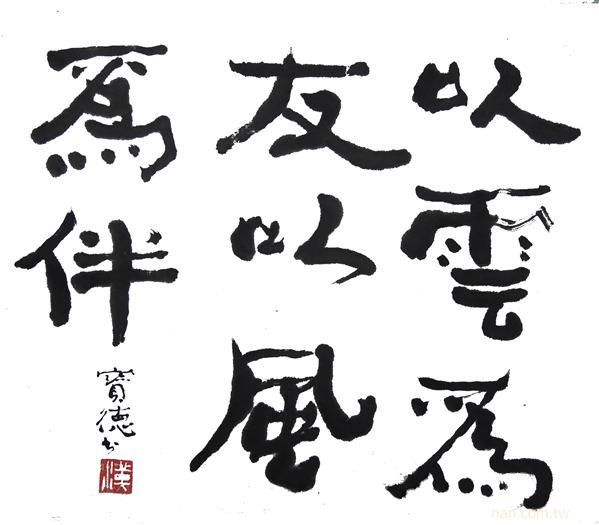 以雲為
友以風
為伴
寶德书
漢
nan.com.tw